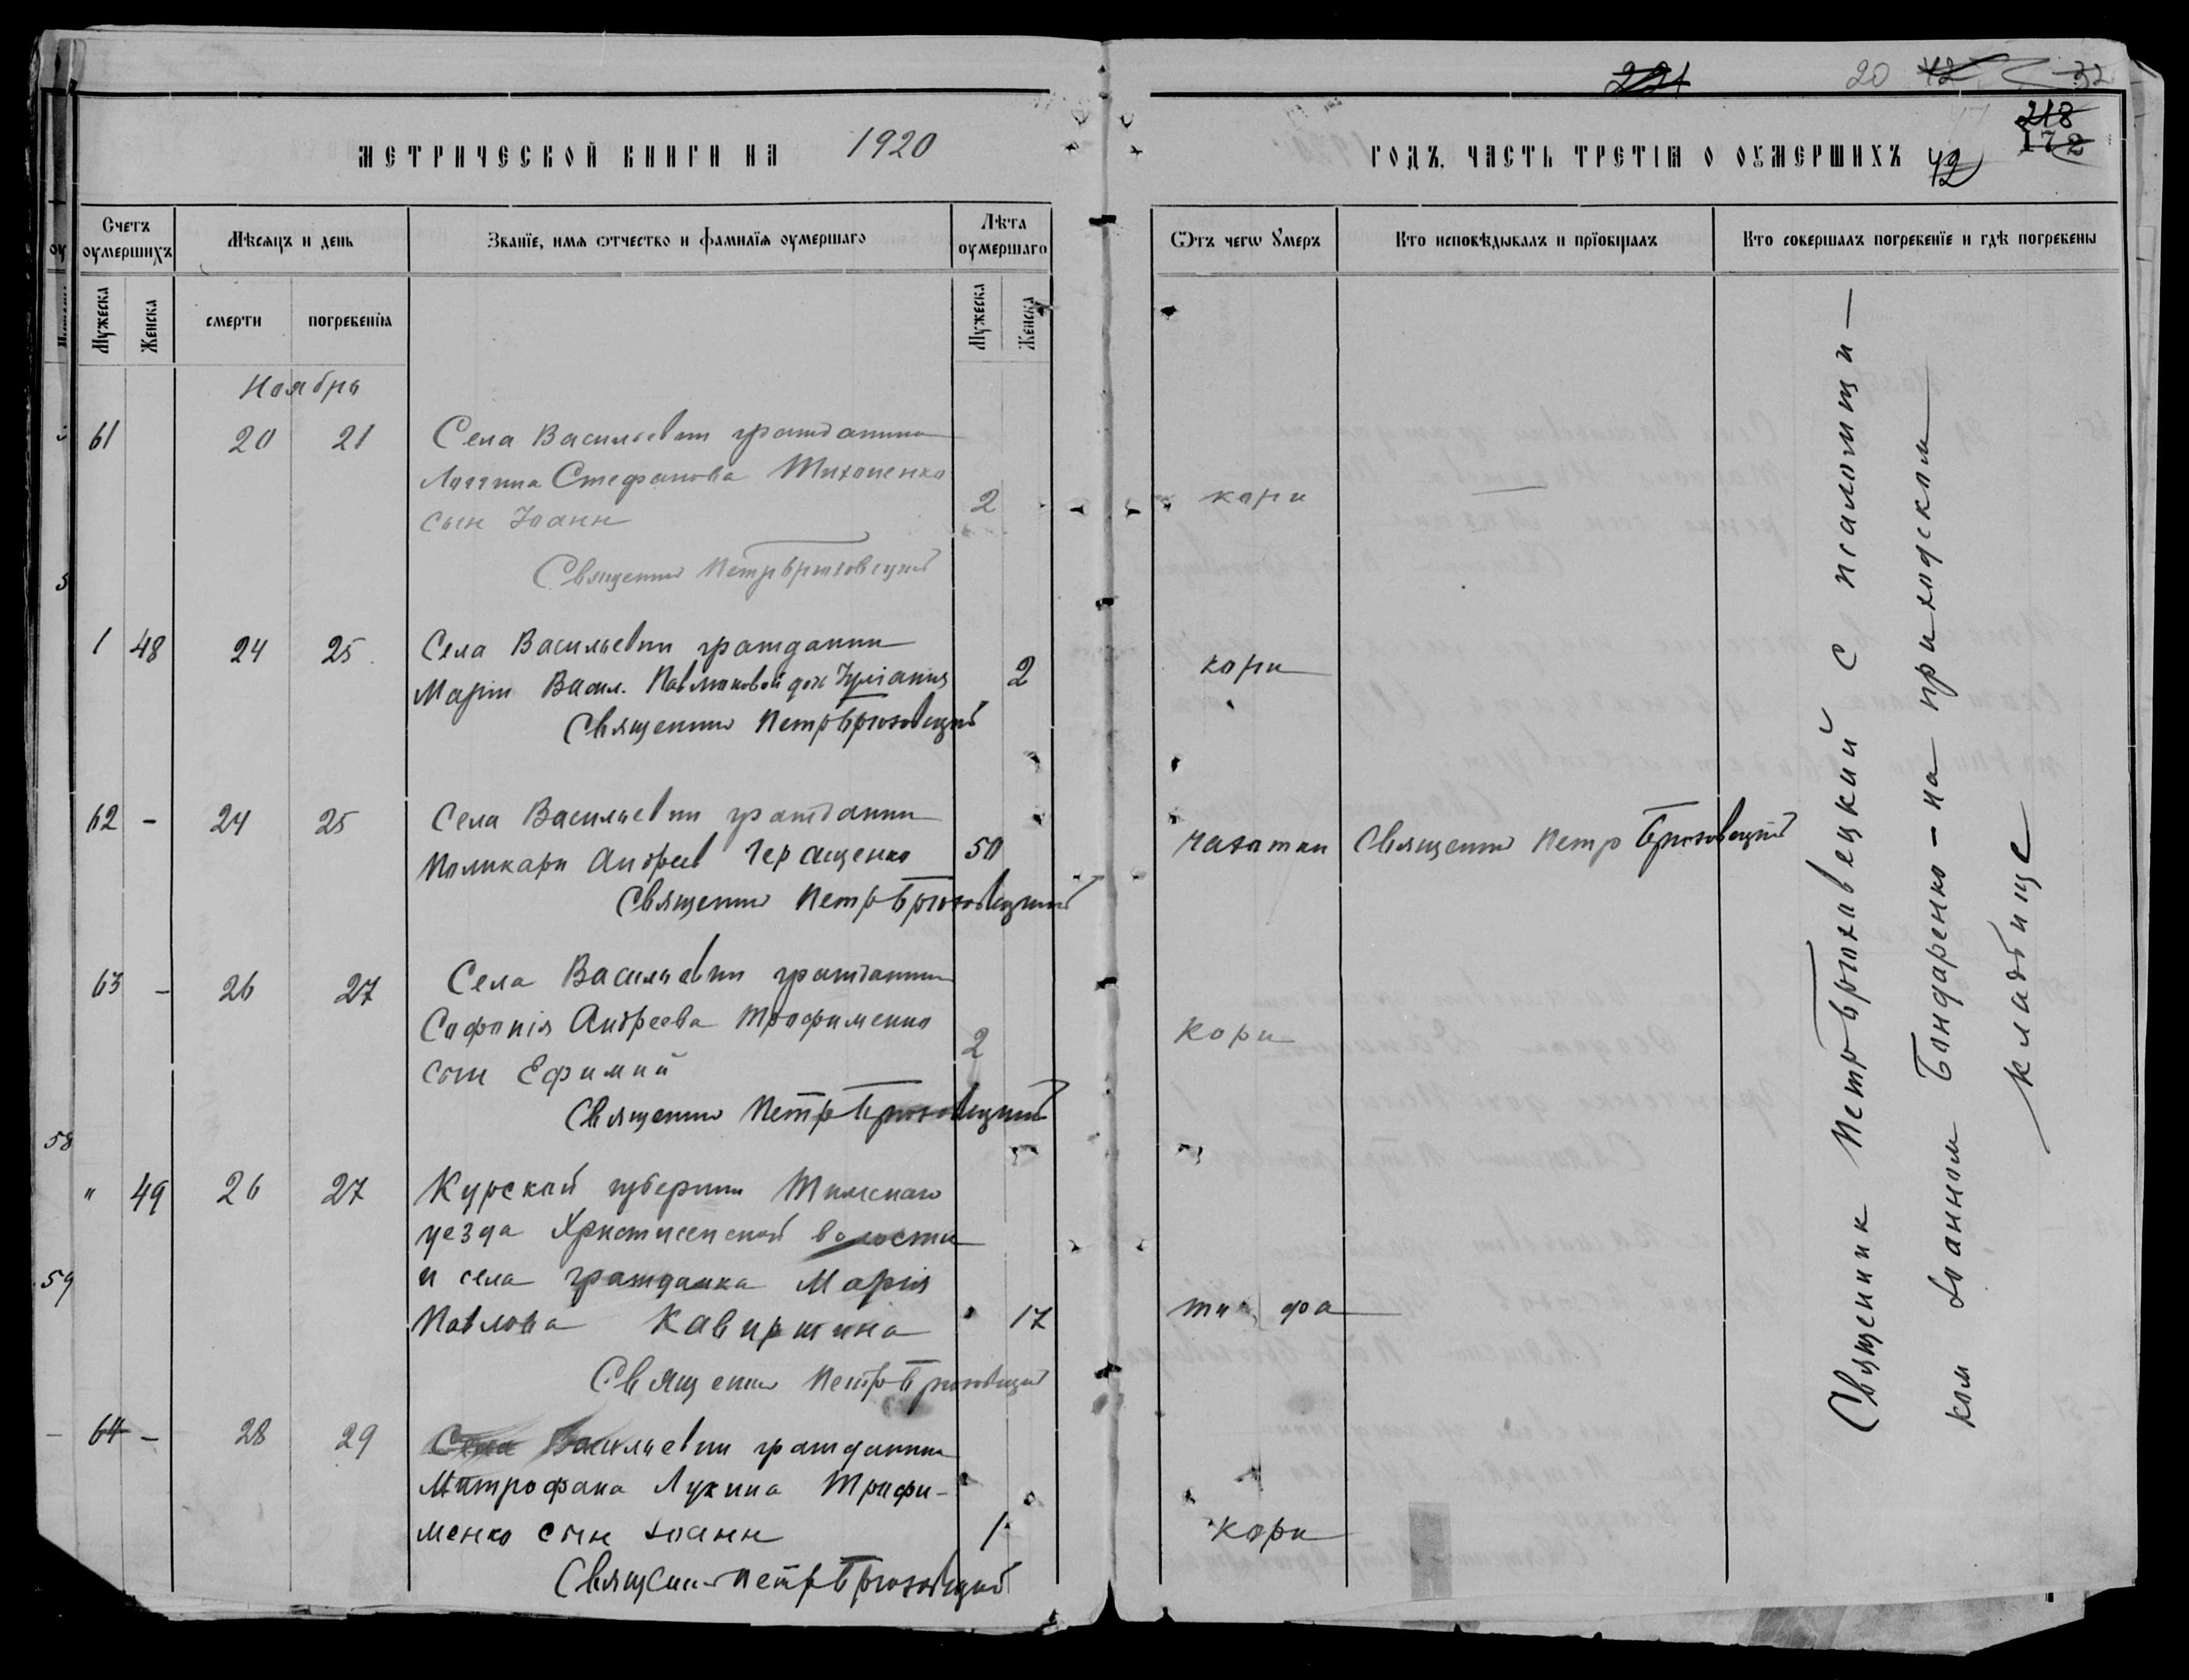 221 20 42 32
218
МЕТРИЧЕСКОЙ КНИГИ НА 1920
ГОДЪ, ЧАСТЬ ТРЕТІѦ О ОУМЕРШИХЪ 42 172
Счетъ оумершихъ
Мѣсяцъ и день
Званїе, имѧ ѿтчество и фамилїѧ оумершаго
Лѣта оумершаго
Ѿтъ чегѡ Умеръ
Кто исповѣдывалъ и прїобщалъ
Кто совершалъ погребенїе и гдѣ погребены
Мужеска Женска смерти погребенїѧ Мужеска Женска
Ноябрь
61 20 21 Села Васильевки гражданина
Стефанова Тихоненко
сын Іоанн 2 кори —
Священник Петр Брюховецкий
1 48 24 25 Села Васильевки гражданки
Маріи Васил. Павлюковой доч Іуліания 2 кори
Священник Петр Брюховецкий
62 – 24 25 Села Васильевки гражданин
Поликарп Андреев Геращенко 50 чахотки Священник Петр Брюховецкий
Священник Петр Брюховецкий
63 – 26 27 Села Васильевки гражданина
Софонія Андреева Трофименко
сын Ефимий 2 кори
Священник Петр Брюховецкий
58
" 49 26 27 Курской губернии Тимскаго
уезда волости
59
и села гражданка Марія
Павлова 17 тифа
Священник Петр Брюховецкий
– 64 – 28 29 Села Васильевки гражданина
Митрофана Лукина Трифи-
менко сын Іоанн 1 кори
Священник Петр Брюховецкий
Священник Петр Брюховецкий с псаломщи –
ком Іоанном Бондаренко – на приходском
кладбище